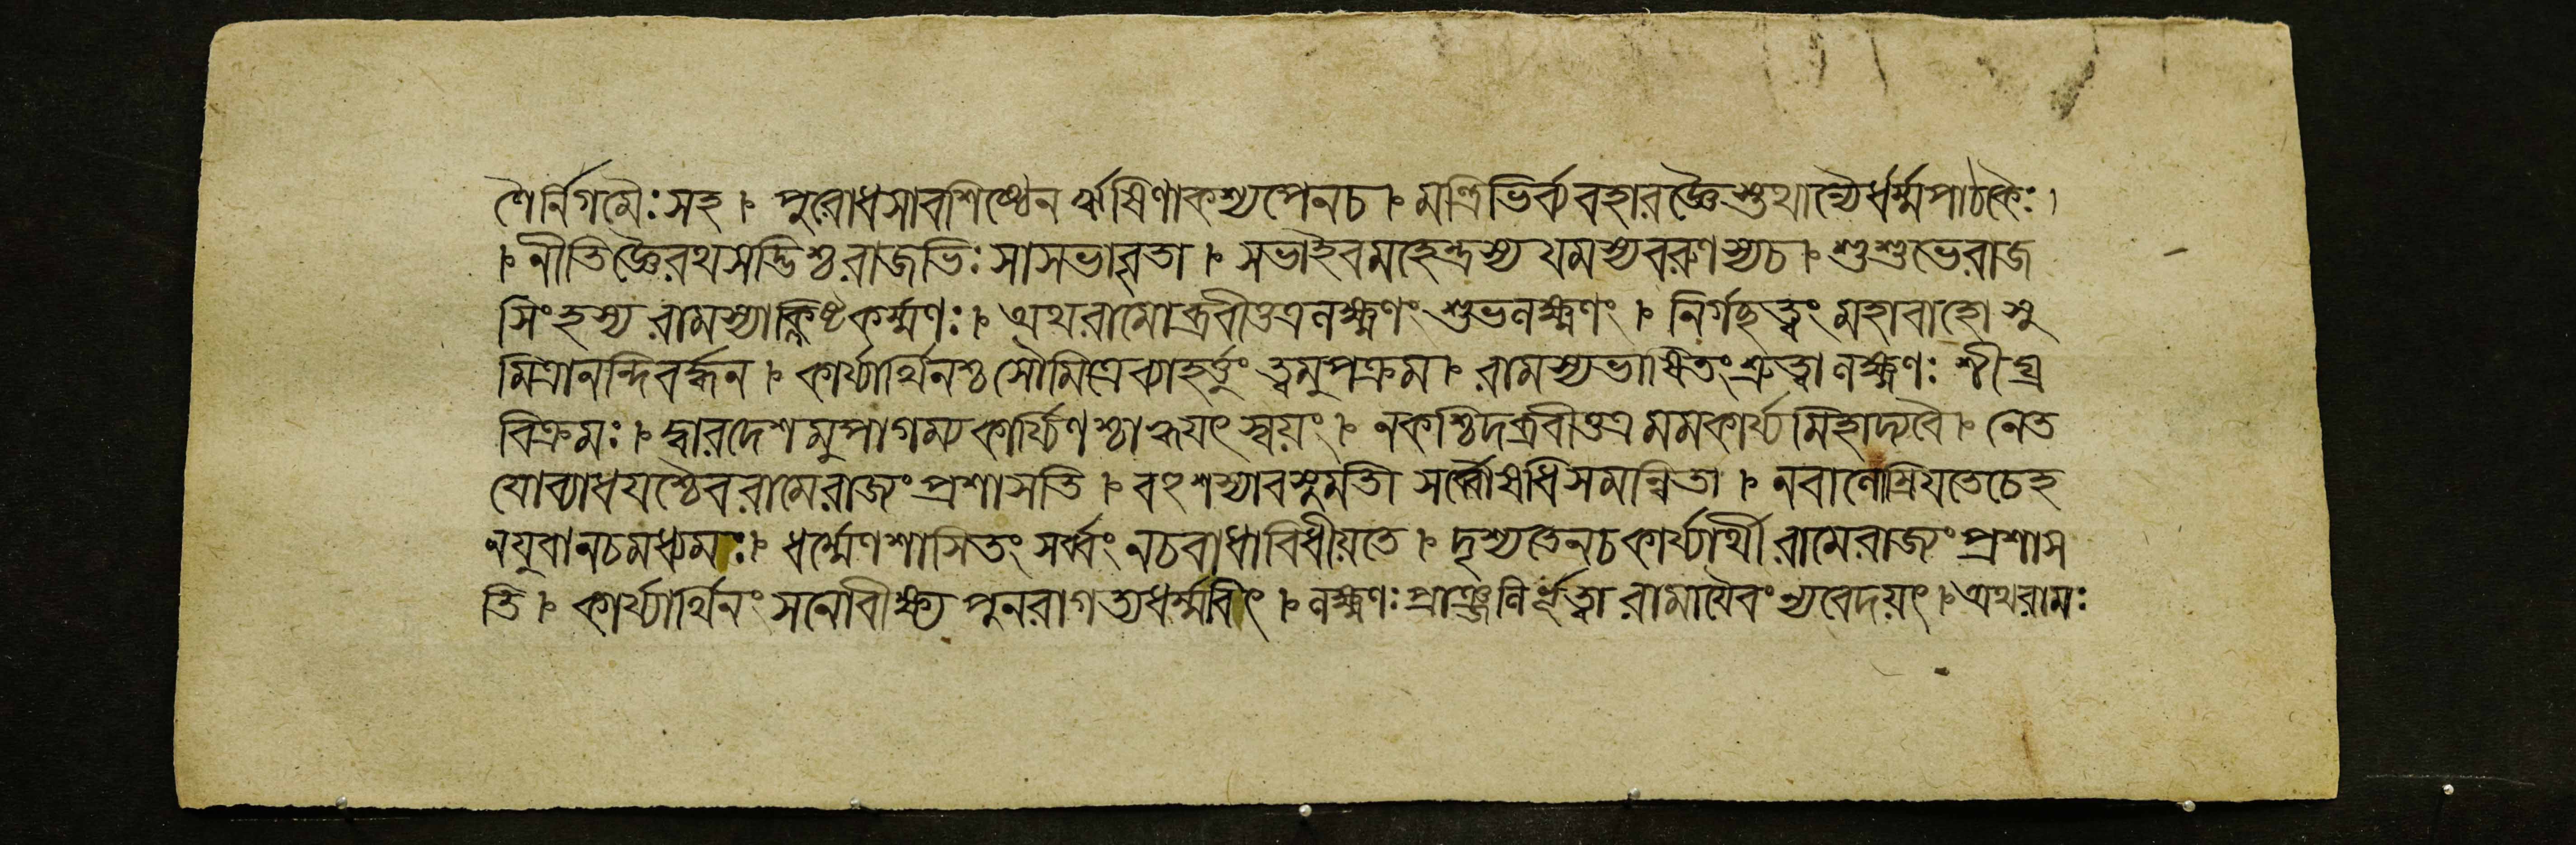 ণৈর্নিগমৈঃসহ । পুরোধসাবশিষ্ঠেন ঋষিণাকশ্যপেনচ । মন্ত্রিভির্ব্যবহারজ্ঞৈস্তথান্যৈর্ধর্ম্মপাঠকৈঃ।
। নীতিজ্ঞৈরথসদ্ভিশ্চরাজভিঃসাসভাবৃতা । সভাইবমহেন্দ্রস্য যমস্যবরুণস্যচ । শুশুভেরাজ
সিংহস্য রামস্যাক্লিষ্টকর্ম্মণঃ। অথরামোব্রবীত্তত্রলক্ষ্মণংশুভলক্ষ্মণং । নির্গচ্ছত্বং মহাবাহো সু
মিত্রানন্দিবর্দ্ধন । কার্য্যার্থিনশ্চসৌমিত্রেব্যাহর্ত্তুং ত্বমুপক্রম । রামস্যভাষিতংশ্রুত্বা লক্ষ্মণঃ শীঘ্র
বিক্রমঃ । দ্বারদেশমুপাগম্যকার্য্যিণশ্চাহ্বয়ৎস্বয়ং । নকশ্চিদব্রবীত্তত্র মমকার্য্যমিহাদ্যবৈ । নেত
যোব্যাধযশ্চৈবরামেরাজ্যংপ্রশাসতি । বহুশস্যাবসুমতী সর্ব্বৌষধিসমান্বিতা । নবালোম্রিয়তেচেহ
নযুবানচমধ্যমঃ। ধর্ম্মেণশাসিতংসর্ব্বং নচবাধাবিধীয়তে । দৃশ্যতেনচকার্য্যার্থী রামেরাজ্যংপ্রশাস
তি । কার্য্যার্থিনংসনোবীক্ষ্য পুনরাগত্যধর্ম্মবীৎ । লক্ষ্মণঃপ্রাঞ্জলির্ভূত্বা রামাযৈবংন্যবেদয়ৎ।অথরামঃ